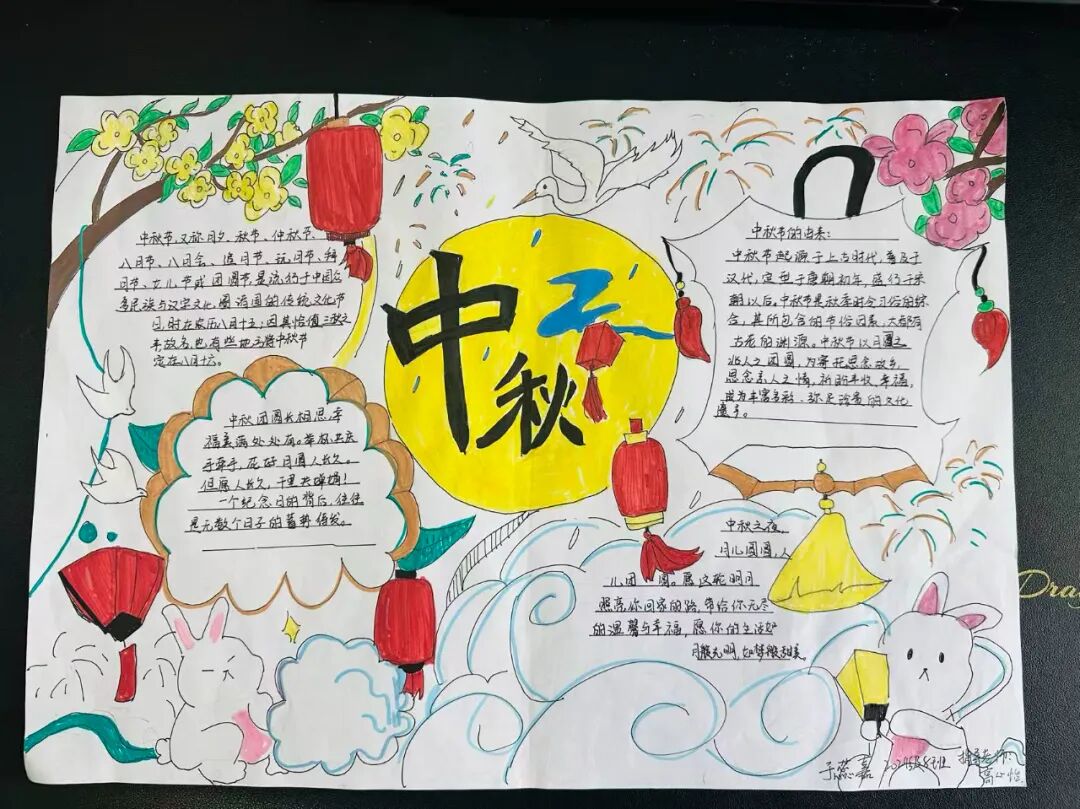 中秋
中秋节,又称月夕、秋节、仲秋节、
八月节、八月会、追月节、玩月节、拜
月节、女儿节或团圆节,是流行于中国众
多民族与汉字文化圈诸国的传统文化节
日,时在农历八月十五;因其恰值三秋之
半,故名,也有些地方将中秋节
定在八月十六。
中秋团圆长相思,幸
福美满处处有。举杯共庆
手牵手,花好月圆人长久。
但愿人长久,千里共婵娟!
一个纪念日的背后,往往
是无数个日子的蓄势待发。
中秋节的由来:
中秋节起源于上古时代,普及于
汉代,定型于唐朝初年,盛行于宋
朝以后。中秋节是秋季时令习俗的综
合,其所包含的节俗因素,大都有
古老的渊源。中秋节以月圆之
兆人之团圆,为寄托思念故乡,
思念亲人之情,祈盼丰收、幸福,
成为丰富多彩、弥足珍贵的文化
遗产。
中秋之夜,
月儿圆圆,人
儿团圆。愿这轮明月
照亮你回家的路,带给你无尽
的温馨与幸福,愿你的生活如
月般光明,如
甜美
嘉
指导老师: